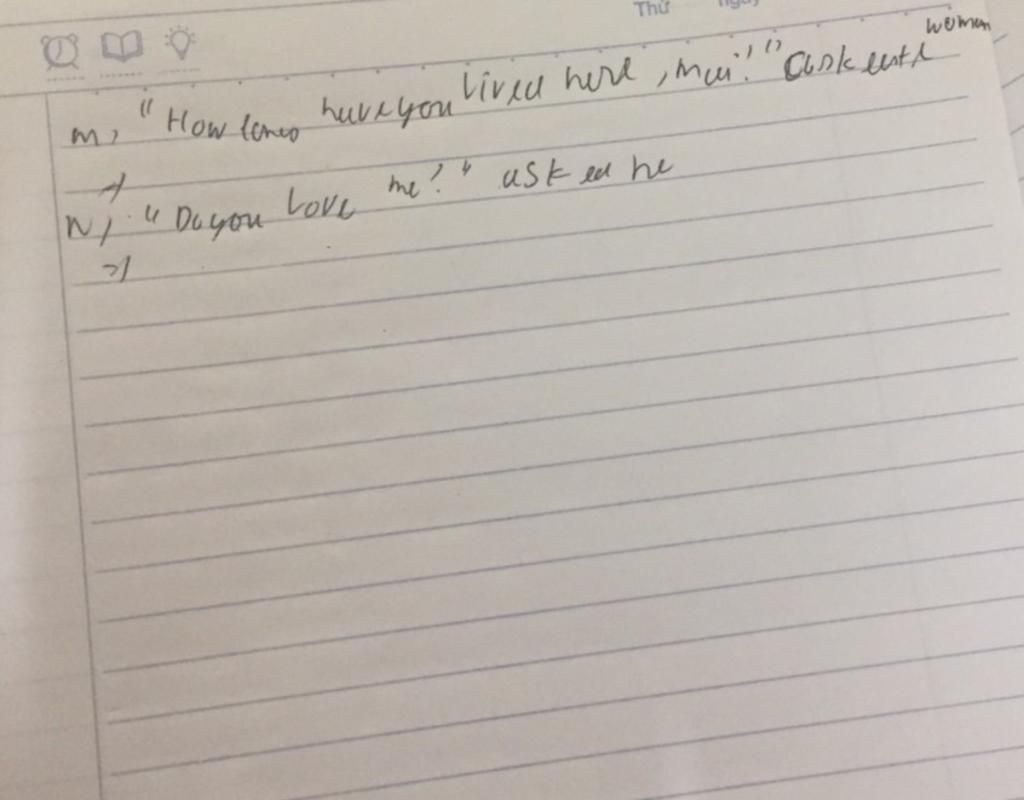 Thứ ngày
m, "How long have you lived here, Mai?" asked the women
→
N, "Do you love me?" asked he
→